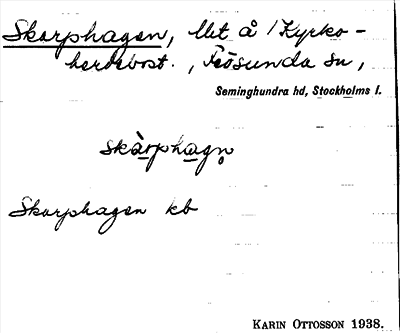 Skarphagen, llet å / Kyrko-
herdebost., Fösunda sn,
Seminghundra hd, Stockholms l.
skàrphagn̥
Skarphagen kb
KARIN OTTOSSON 1938.